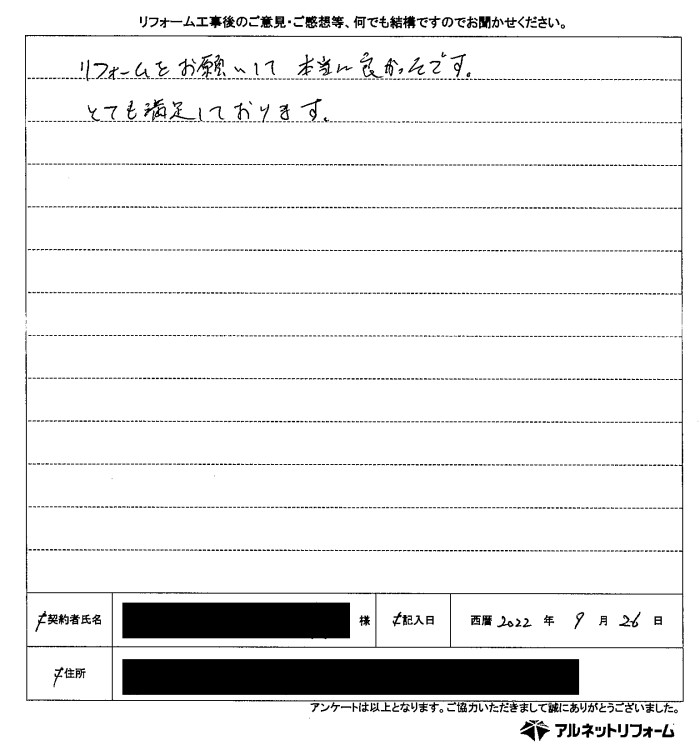 リフォーム工事後のご意見・ご感想等、何でも結構ですのでお聞かせください。
リフォームをお願いして 本当に良かったです。
とても満足しております。
契約者氏名 様 記入日 西暦 2022 年 9 月 26 日
住所
アンケートは以上となります。ご協力いただきまして誠にありがとうございました。
アルネットリフォーム